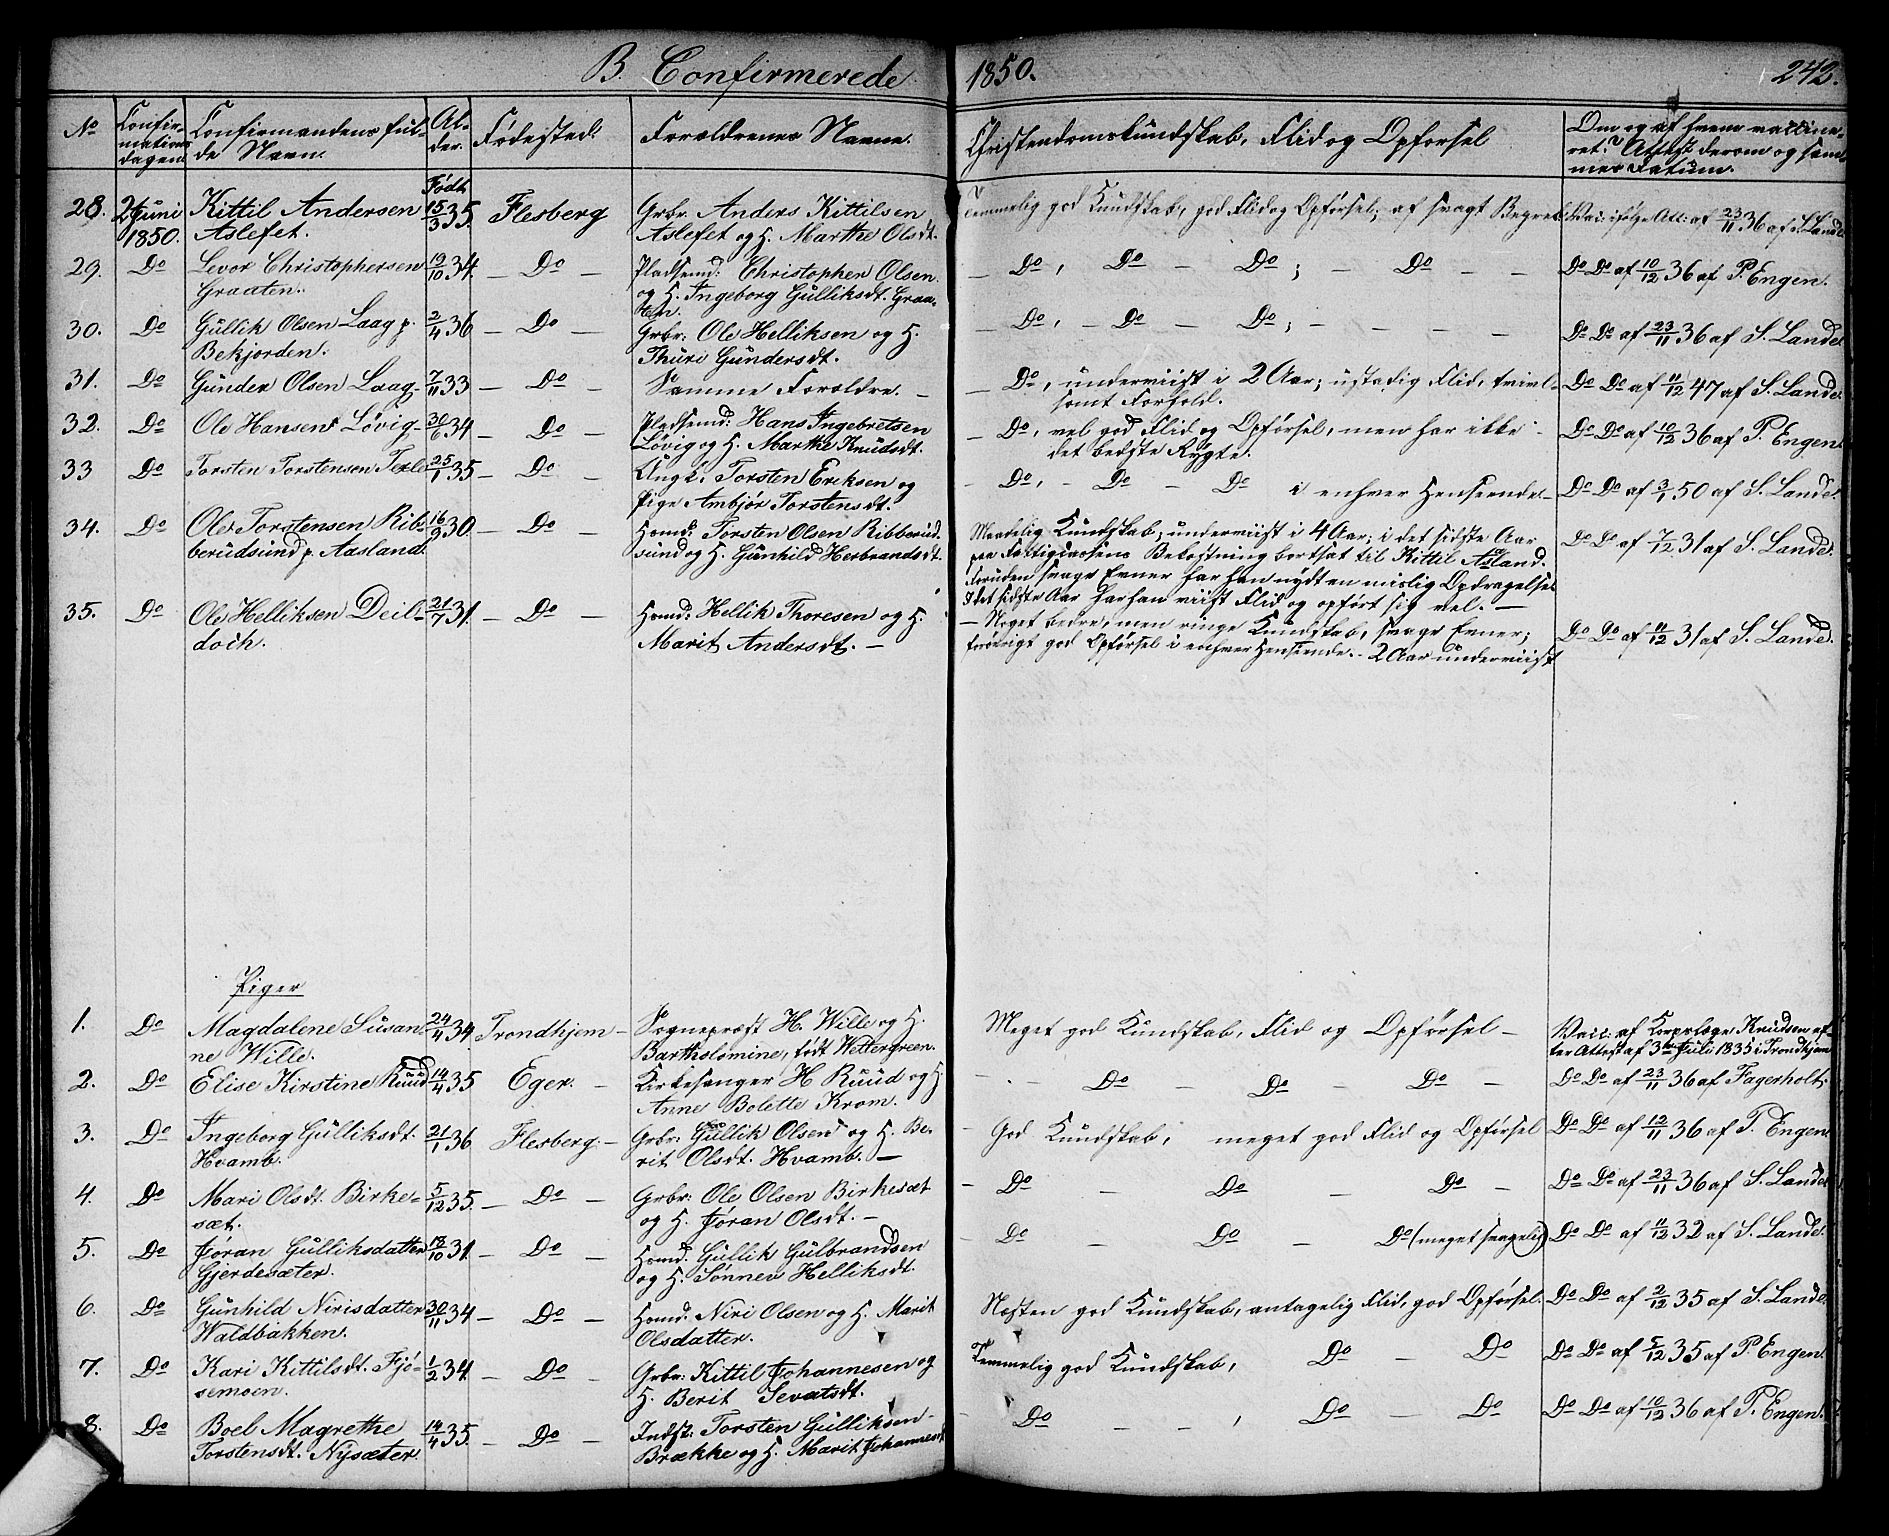 B. Confirmerede 1850. 242.
No Confirmationsdagen Confirmandens fulde Navn. Alder. Fødested. Forældrenes Navne. Christendomskundskab, Flid og Opførsel Om og af hvem vaccineret? Attest derom og sammes Datum.
28. 2 Juni 1850. Kittil Andersen Født 15/3 35. Flesberg Grbr. Anders Kittilsen Temmelig god Kundskab, god Flid og Opførsel; af svagt Begreb. Vacc. ifølge Att: af 23/11 36 af S. Lande.
Aslefet. Aslefet og H. Marthe Olsdt.
29. Do Levor Christophersen 19/10 34. — Do — Pladsmd: Christopher Olsen — Do, Do — Do; — Do — — Do Do af 10/12 36 af P. Engen.
Graaten. og H. Ingeborg Gulliksdt. Graaten.
30. Do Gullik Olsen Laag p. 2/4 36 — Do — Grbr: Ole Helliksen og H. — Do, — Do — Do; — — — — Do Do af 23/11 36 af S. Lande.
Bekjorden. Thuri Gundersdt.
31. Do Gunder Olsen Laag 7/11 33 — Do — Samme Forældre. — — Do, underviist i 2 Aar; ustadig Flid, tvivl- Do Do af 11/12 47 af S. Lande.
somt Forhold.
32. Do Ole Hansen Løvig 30/6 34 — Do — Pladsmd: Hans Ingebretsen — Do, vel god Flid og Opførsel, men har ikke Do Do af 10/12 36 af P. Engen.
Løvig og H. Marthe Knudsdt. det bedste Rygte.
33 Do Torsten Torstensen 25/1 35 — Do Ungk. Torsten Eriksen og — Do, — Do — Do i enhver Henseende. Do Do af 3/1 50 af S. Lande.
Pige Ambjør Torstensdt.
34. Do Ole Torstensen Rib- 16/9 30. — Do Husmd: Torsten Olsen Ribberud- Maadelig Kundskab; underviist i 4 Aar; i det sidste Aar Do Do af 7/12 31 af S. Lande.
berudsund p. Aasland. sund og H. Gunhild Herbrandsdt. paa Fattigvæsenets Bekostning bortsat til Kittil Aasland.
Foruden svage Evner har han nydt en mislig Opdragelse.
I det sidste Aar har han viist Flid og opført sig vel. —
35. Do Ole Helliksen Deil- 21/7 31. — Do — Husmd: Hellik Thoresen og H. — Noget bedre, men ringe Kundskab, svage Evner; Do Do af 11/12 31 af S. Lande.
doch. Marit Andersdt. — forøvrigt god Opførsel i enhver Henseende. - 2 Aar underviist
Piger
1. Do Magdalene Susan- 24/4 34 Trondhjem — Sognepræst H. Wille og H. Meget god Kundskab, Flid og Opførsel — Vacc. af Korpslæge Knudsen ef-
ne Wille. Bartholomine, født Wettergreen. ter Attest af 3die Juli 1835 i Trondhjem
2. Do Elise Kirstine Ruud 14/4 35 Eger. — Kirkesanger H Ruud og H. — — Do — Do — Do — Do Do af 23/11 36 af Fagerholt.
Anne Bolette Krom.
3. Do Ingeborg Gulliksdt. 21/1 36 Flesberg. — Grbr: Gullik Olsen og H. Be- — God Kundskab, meget god Flid og Opførsel Do Do af 12/11 36 af P. Engen.
Hvamb. rit Olsdt. Hvamb. —
4. Do Mari Olsdt. Birke- 5/12 35. — Do — Grbr: Ole Olsen Birkesæt — Do — Do — Do — Do Do af 23/11 36 af S. Lande
sæt. og H. Jøran Olsdt. —
5. Do Jøran Gulliksdatter 18/10 31. — Do — Husmd. Gullik Gulbrandsen — Do — Do — Do (meget svagelig) Do Do af 11/12 32 af S. Lande.
Gjerdesæter. og H. Sønnev Helliksdt.
6. Do Gunhild Nirisdatter 30/11 34 — Do — Husmd. Niri Olsen og H. Marit Næsten god Kundskab, antagelig Flid, god Opførsel. Do Do af 2/12 35 af S. Lande.
Waldbakken. Olsdatter.
7. Do Kari Kittilsdt. Fjø- 1/2 34. — Do — Grbr: Kittil Johannesen og Temmelig god Kundskab, Do — Do Do Do af 5/12 35 af P. Engen.
semoen. H. Berit Sevatsdt.
8. Do Boel Magrethe 14/4 35. — Do — Indst: Torsten Gulliksen — Do — —, Do — Do Do Do af 10/12 36 af P. Engen.
Torstensdt. Nysæter. Brække og H. Marit Johannesdt